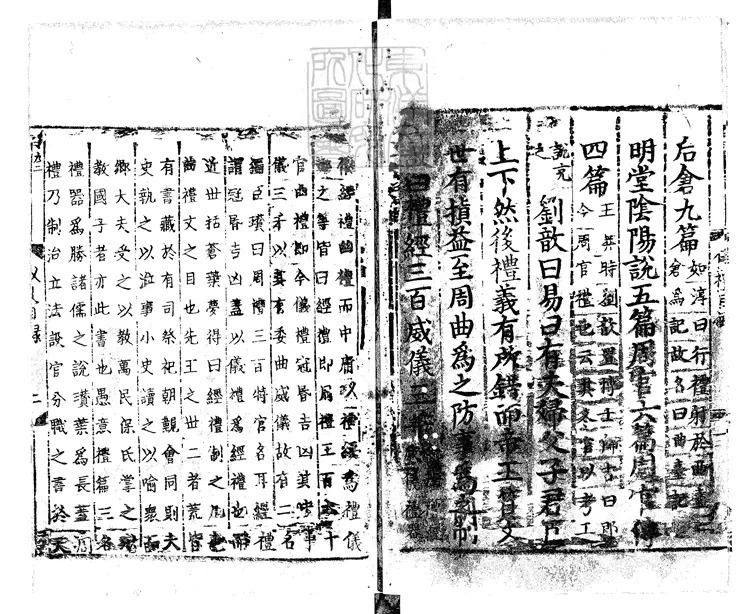 后倉九篇 如淳曰行禮射於曲臺
后倉為記故名曰曲臺記
明堂陰陽說五篇周官六篇周官傳
四篇 王莽時劉歆置博士師古曰即
今周官禮也云其冬官以考工
記充
之 劉歆曰易曰有夫婦父子君臣
上下然後禮義有所錯而帝王質文
世有損益至周曲為之防事為之制
曰禮經三百威儀三千
經禮曲禮而中庸以禮經為禮儀
之等皆曰經禮即周禮三百六十
官曲禮即今儀禮冠昏吉凶其中事
儀三千以其有委曲威儀故有二名
臣瓚曰周禮三百特官名耳經禮
謂冠昏吉凶蓋以儀禮為經禮也而
近世括蒼葉夢得曰經禮制之凡也
曲禮文之目也先王之世二者蓋皆
有書藏於有司祭祀朝覲會同則大
史執之以涖事小史讀之以喻衆而
鄉大夫受之以教萬民保氏掌之以
教國子者亦此書也愚意禮篇三名
禮器為勝諸儒之說瓚葉為長蓋周
禮乃制治立法設官分職之書於天